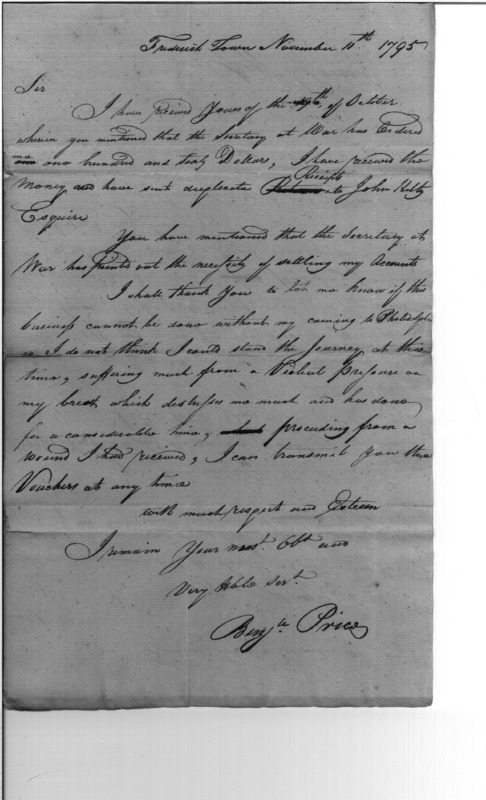 Frederick Town November 11th 1795
Sir
I have received Yours of the 19th of October
wherein you mentioned that the Secretary at War has Ordered
me one hundred and thirty Dollars, I have received the
Receipts
Money and have sent dupleicate to John Kilty
Esquire
You have mentioned that the Secretary at
War has pointed out the necessity of settling my Accounts
I shall thank You to let me know if this
business cannot be done without my coming to Philadelph
ia I do not think I could stand the Journey at this
time, suffering much from a Violent Pressure on
my breast which distresses me much and has done
for a considerable time, proceeding from a
wound I had received, I can transmit you the
Vouchers at any time
with much respect and Esteem
I remain Your most. Obt. and
Very Hble Servt.
Benja. Price